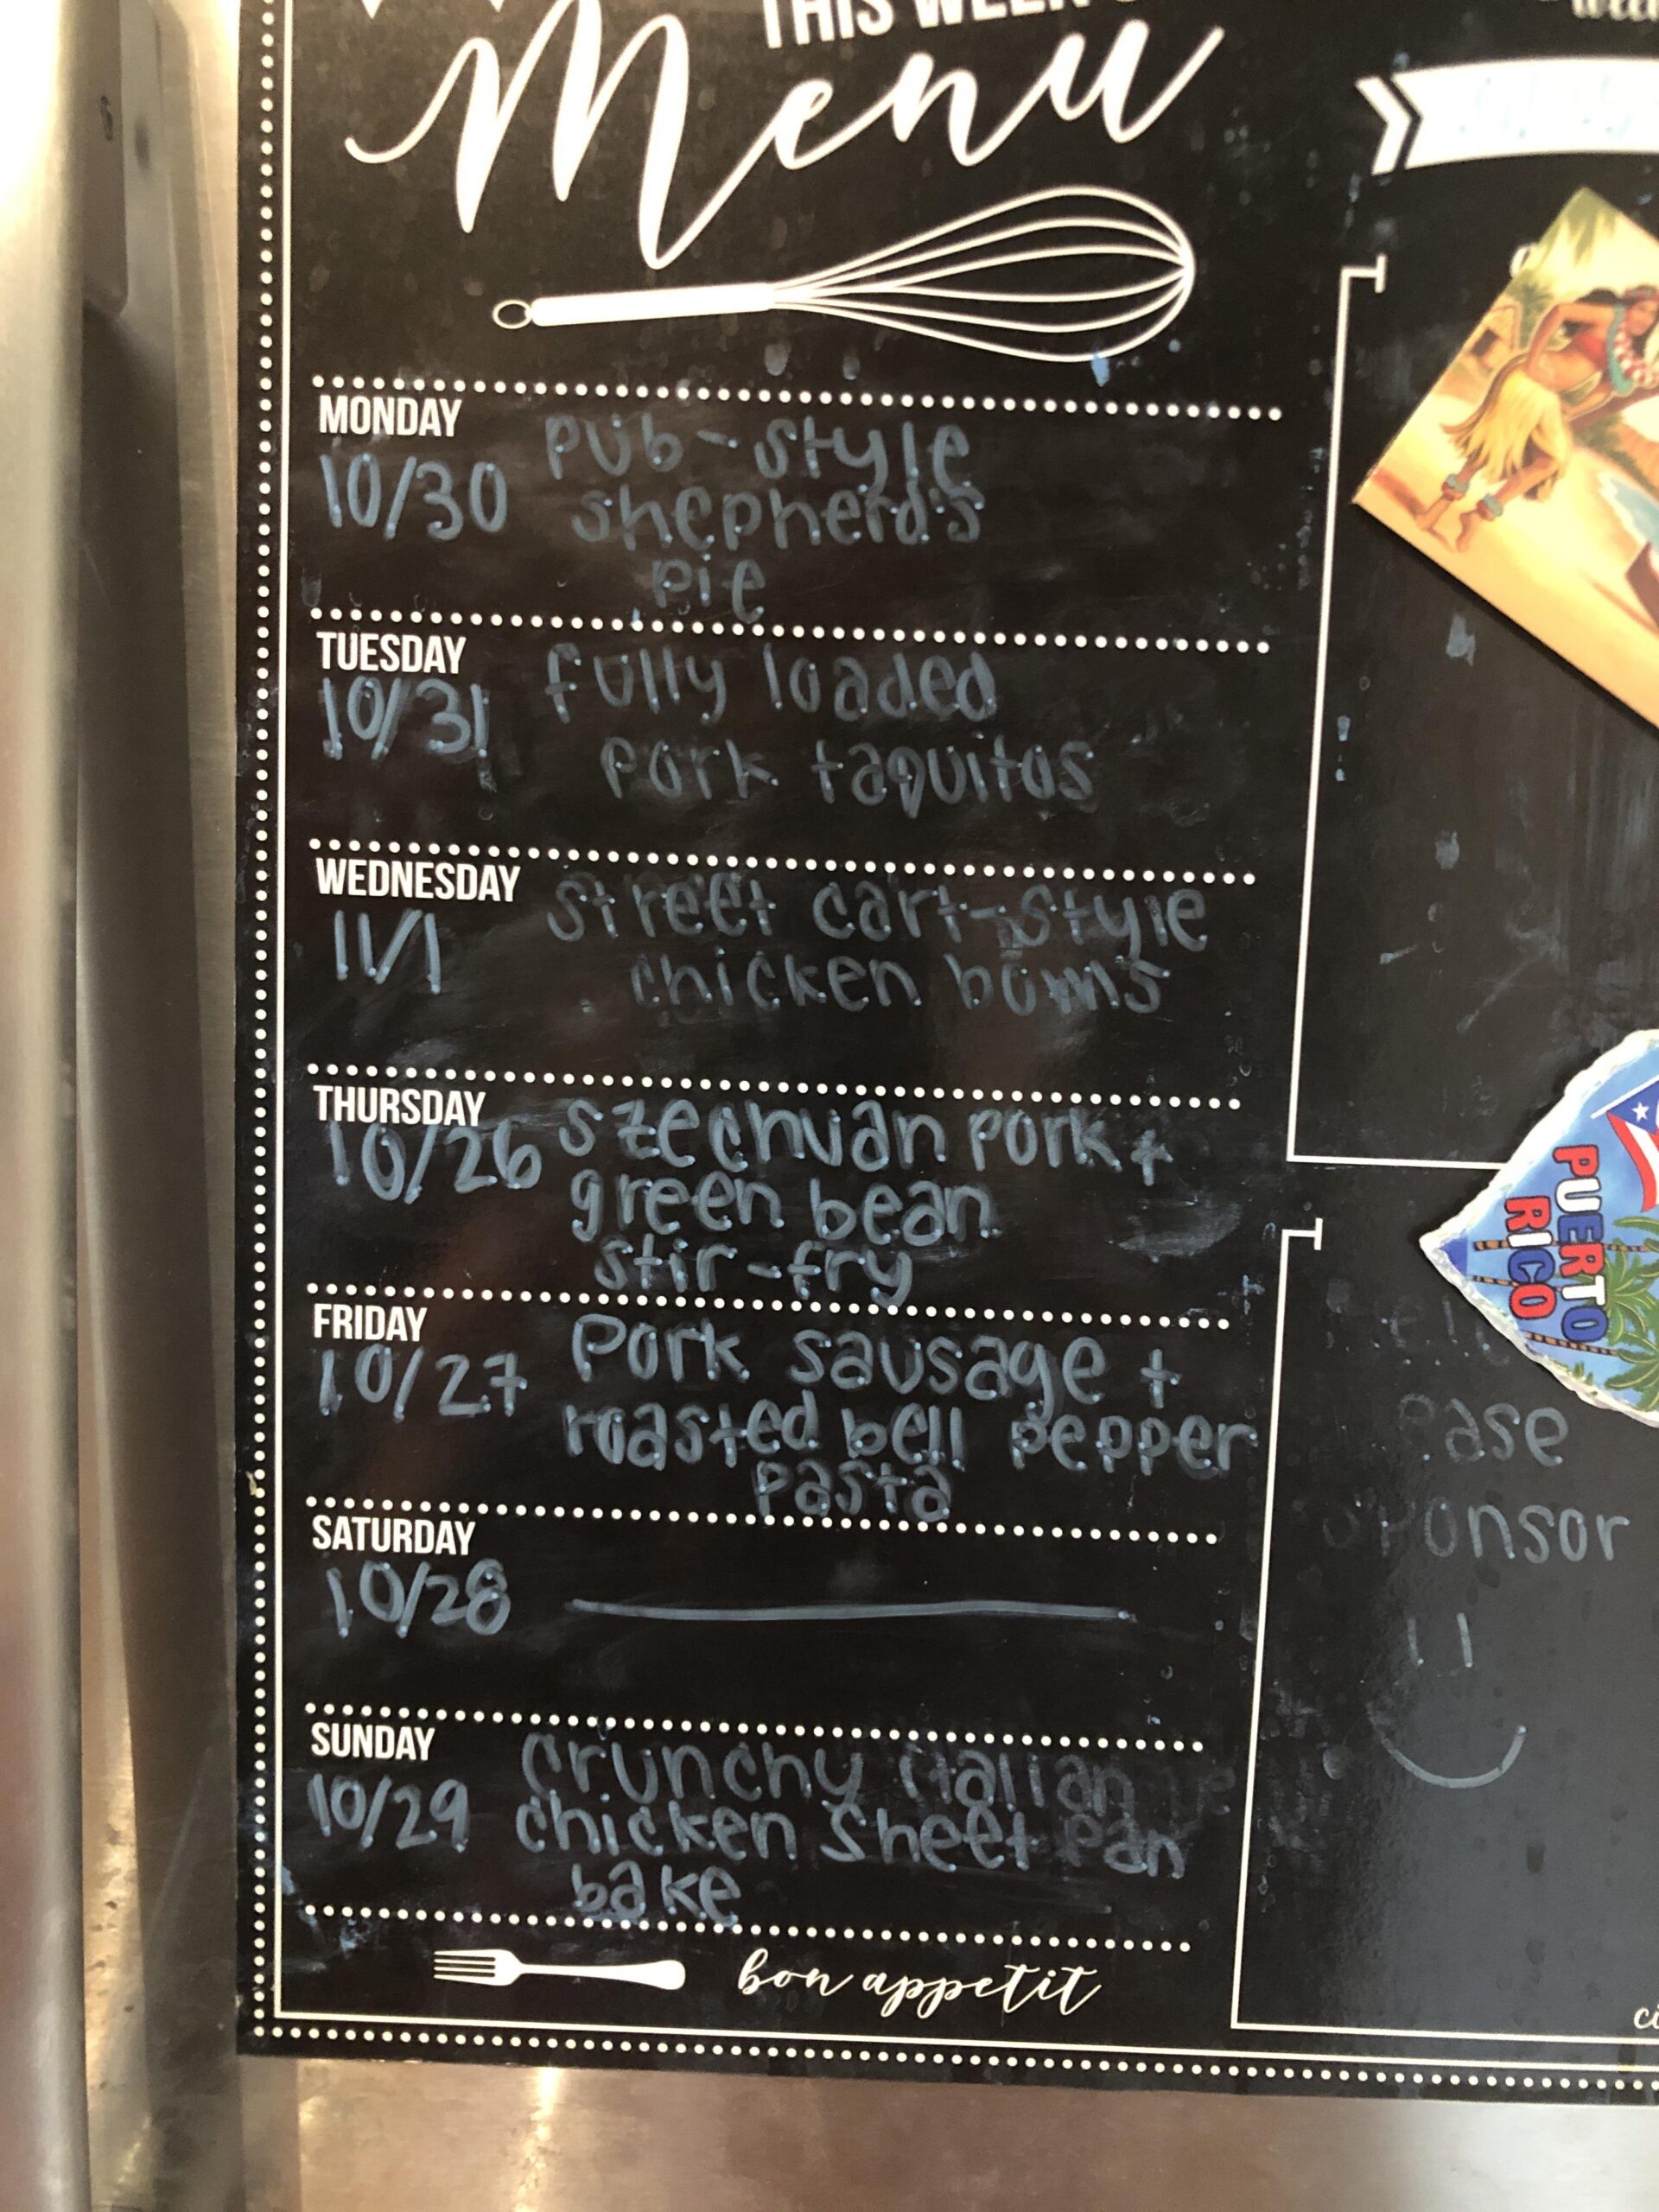 THIS WEEK'S
Menu
MONDAY
10/30
pub-style
shepherd's
pie
TUESDAY
10/31
fully loaded
pork taquitos
WEDNESDAY
11/1
street cart-style
chicken bowls
THURSDAY
10/26
szechuan pork +
green bean
stir-fry
FRIDAY
10/27
pork sausage +
roasted bell pepper
pasta
SATURDAY
10/28
SUNDAY
10/29
crunchy italian
chicken sheet pan
bake
bon appetit
PUERTO
RICO